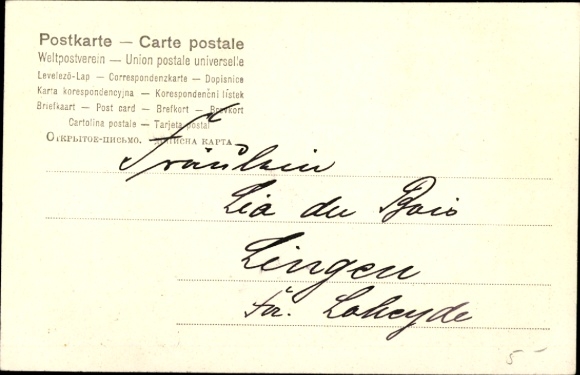 Postkarte — Carte postale
Weltpostverein — Union postale universelle
Levelező-Lap — Correspondenzkarte — Dopisnice
Karta korespondencyjna — Korespondenční lístek
Briefkaart — Post card — Brefkort — Brevkort
Cartolina postale — Tarjeta postal
Открытое-письмо. — Дописна карта
Fräulein
Lia du Bois
Lingen
Fr. Loheyde
5